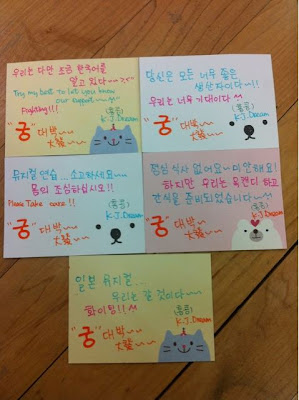 우리는 다만 조금 한국어를
알고 있다~~ㅋㅋ"
Try my best to let you know
our support~~ 5"
Fighting!!
(홍콩)
K.J.Dream
"궁" 대박~~
大發~~
당신은 모든 너무 좋은
생산자이다~!!
우리는 너무 기대이다 ^^
(홍콩)
K.J.Dream
"궁" 대박~~
大發~~
뮤지컬 연습... 수고하세요~
몸의 조심하십시오!!
Please Take care !!
(홍콩)
K.J.Dream
"궁" 대박~~
大發~~
점심 식사 없어요~ 미안해요!
하지만 우리는 목캔디 하고
간식을 준비되었습니다~^^
(홍콩)
K.J.Dream
"궁" 대박~~
大發~~
일본 뮤지컬...
우리는 갈 것이다~~
화이팅!! ^^
(홍콩)
K.J.Dream
"궁" 대박~~
大發~~